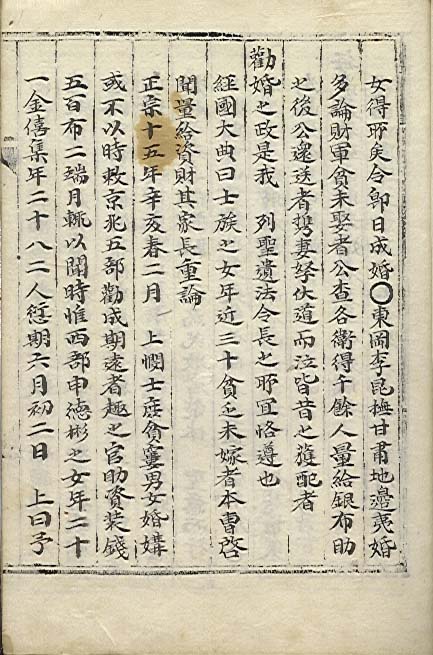 女得所矣令即日成婚〇東岡李昆撫甘肅地邊夷婚
多論財軍貧未娶者公查各衛得千餘人量給銀布助
之後公還送者携妻孥伏道而泣皆昔之獲配者
勸婚之政是我 列聖遺法令長之所宜恪遵也
經國大典曰士族之女年近三十貧乏未嫁者本曹啓
聞量給資財其家長重論
正宗十五年辛亥春二月 上憫士庶貧窶男女婚媾
或不以時敕京兆五部勸成期遠者趣之官助資裝錢
五百布二端月輒以聞時惟西部申德彬之女年二十
一金僖集年二十八二人愆期六月初二日 上曰予